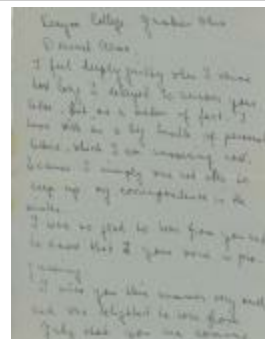 Kenyon College Gambier Ohio
Dearest
I feel deeply guilty when I
how long I delayed to answer your
letter. But as a matter of fact, I
have still a big bundle of personal
letters which I am answering now,
because I simply was not able to
keep up my correspondence in the
I was so glad to hear from you and
to know that your
I miss you this summer very much
and was delighted to hear from
that you are coming